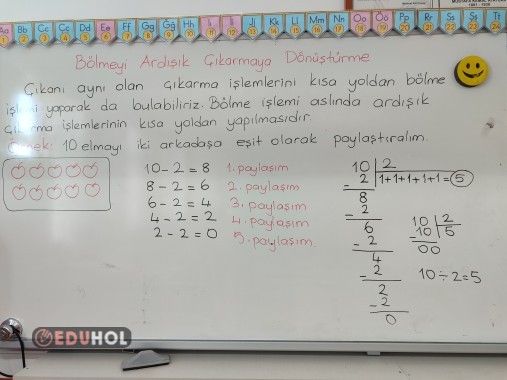 Aa Bb Cc Çç Dd Ee Ff Gg Ğğ Hh Iı İi Jj Kk Ll Mm Nn Oo Öö Pp Rr Ss Şş Tt
Bölmeyi Ardışık Çıkarmaya Dönüştürme
Çıkanı aynı olan çıkarma işlemlerini kısa yoldan bölme
işlemi yaparak da bulabiliriz. Bölme işlemi aslında ardışık
çıkarma işlemlerinin kısa yoldan yapılmasıdır.
Örnek: 10 elmayı iki arkadaşa eşit olarak paylaştıralım.
10 - 2 = 8 1. paylaşım
8 - 2 = 6 2. paylaşım
6 - 2 = 4 3. paylaşım
4 - 2 = 2 4. paylaşım
2 - 2 = 0 5. paylaşım
10 2
- 2 1+1+1+1+1=5
8
- 2
6
- 2
4
- 2
2
- 2
0
10 2
- 10 5
00
10 ÷ 2 = 5
EDUHOL